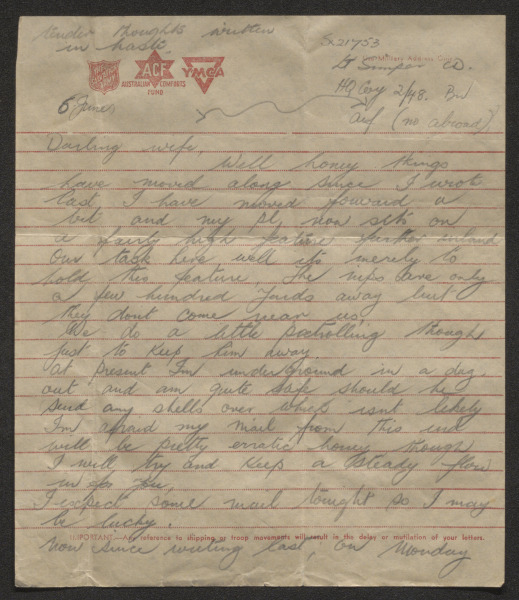 tender thoughts written
in haste.
SX21753
Lt Simper CD.
THE SALVATION ARMY
ACF
AUSTRALIAN COMFORTS
FUND
YMCA
Military Address Only
HQ Coy 2/48. Bn
5 June
Aif (no abroad)
Darling wife,
Well honey things
have moved along since I wrote
last, I have moved forward a
bit and my pl. now sits on
a fairly high feature further inland
Our task here well its merely to
hold this feature. The nips are only
a few hundred yards away but
they dont come near us,
We do a little patrolling though
just to keep him away.
at present I'm underground in a dug
out and am quite safe should he
send any shells over which isnt likely
I'm afraid my mail from this end
will be pretty erratic honey though
I will try and keep a steady flow
up for you,
I expect some mail tonight so I may
be lucky.
IMPORTANT—Any reference to shipping or troop movements will result in the delay or mutilation of your letters.
Now since writing last, on Monday